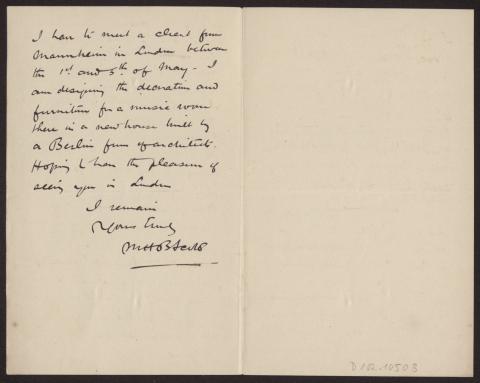 I have to meet a client from
Mannheim in London between
the 1st and 5th of May. I
am designing the decoration and
furniture for a music room
there in a new house built by
a Berlin firm of architects.
Hoping to have the pleasure of
seeing you in London
I remain
Yours truly
MHBScott
D 102.10503